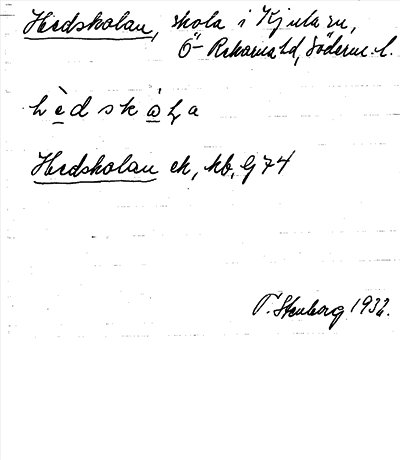 Hedskolan, skola i Kjula sn,
Ö-Rekarne hd, Söderm. l.
hèdskòla
Hedskolan ek, kb, G 74
T. Stenberg 1932.